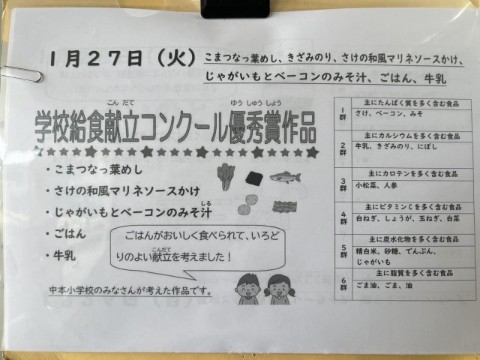 1月27日（火）
こまつなっ葉めし、きざみのり、さけの和風マリネソースかけ、
じゃがいもとベーコンのみそ汁、ごはん、牛乳
こんだて
ゆうしゅうしょう
学校給食献立コンクール優秀賞作品
・こまつなっ葉めし
・さけの和風マリネソースかけ
しる
・じゃがいもとベーコンのみそ汁
・ごはん
・牛乳
ごはんがおいしく食べられて、いろど
こんだて
りのよい献立を考えました！
中本小学校のみなさんが考えた作品です。
1群
主にたんぱく質を多く含む食品
さけ、ベーコン、みそ
2群
主にカルシウムを多く含む食品
牛乳、きざみのり、にぼし
3群
主にカロテンを多く含む食品
小松菜、人参
4群
主にビタミンCを多く含む食品
白ねぎ、しょうが、玉ねぎ、白菜
5群
主に炭水化物を多く含む食品
精白米、砂糖、でんぷん、
じゃがいも
6群
主に脂質を多く含む食品
ごま油、ごま、油